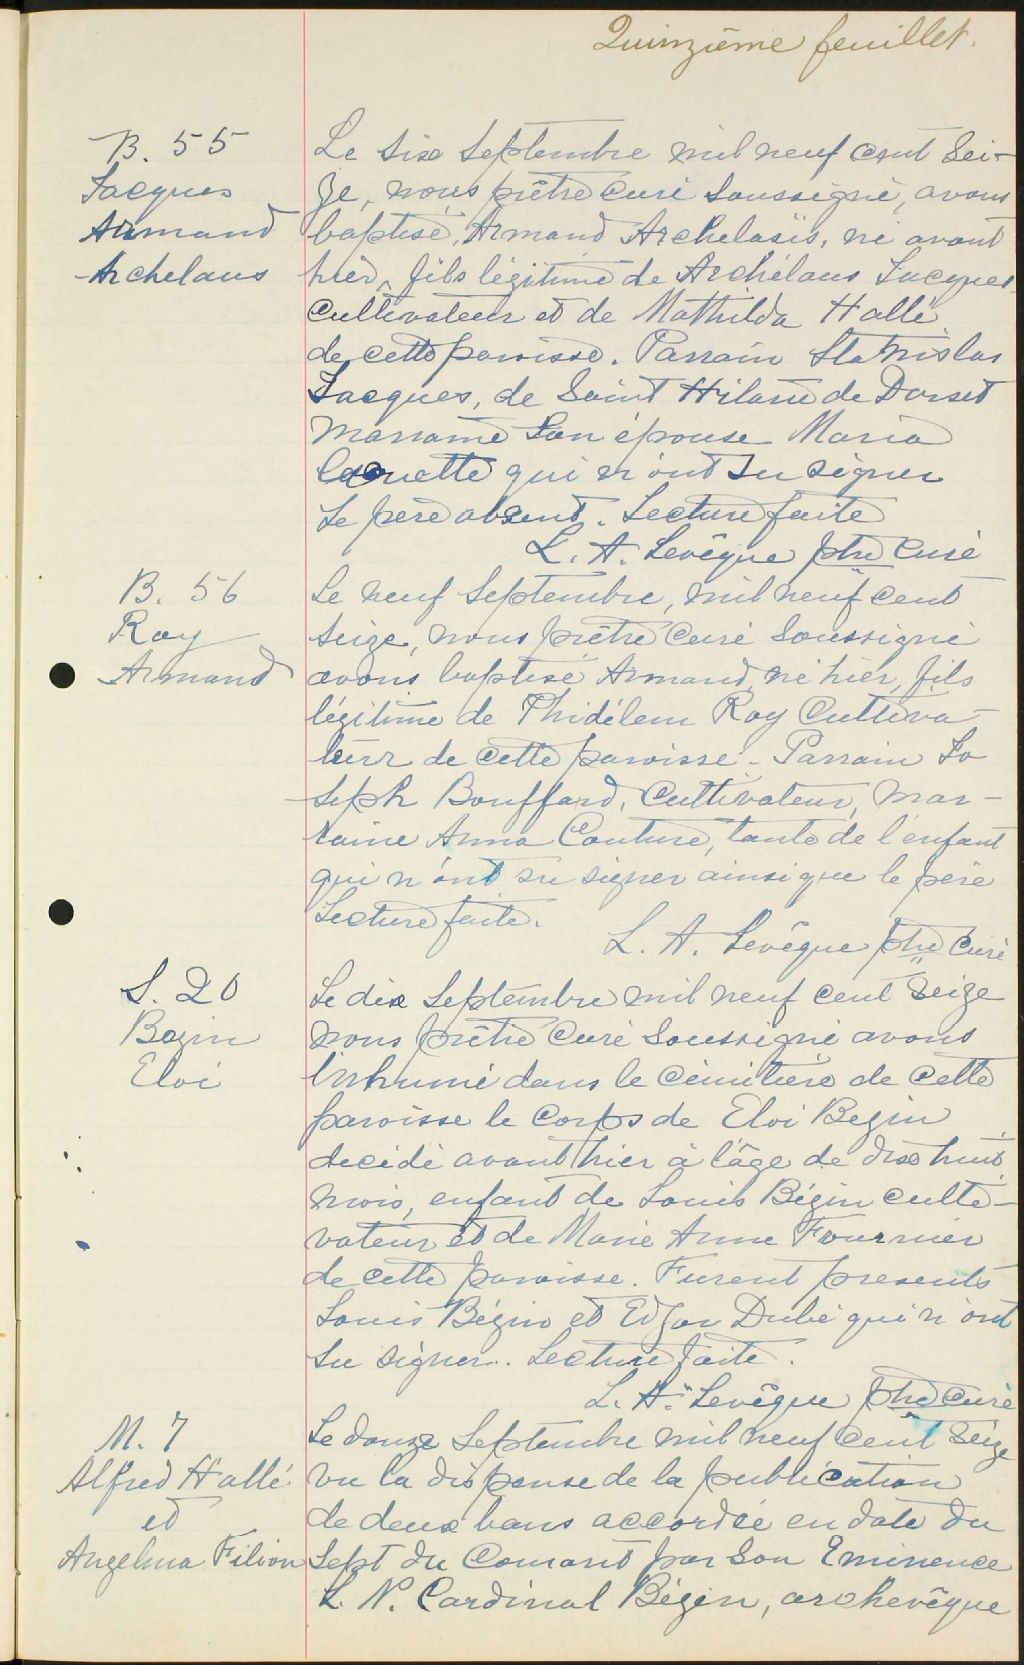 Quinzième feuillet.
B. 55
Jacques
Armand
Archelaus
Le six Septembre mil neuf cent Sei-
ze, nous prêtre curé soussigné, avons
baptisé, Armand Archelaüs, né avant
hier, fils légitime de Archélaus Jacques
cultivateur et de Mathilda Hallé
de cette paroisse. Parrain Stanislas
Jacques, de Saint Hilaire de Dorset
marraine son épouse Maria
qui n'ont su signer
Le père absent. Lecture faite
L. A. Levêque ptre Curé
B. 56
Roy
Armand
Le neuf Septembre, mil neuf cent
seize, nous prêtre curé soussigné
avons baptisé Armand, né hier, fils
légitime de Phidélem Roy Cultiva-
teur de cette paroisse - Parrain Jo
seph Bouffard, Cultivateur, mar-
raine Anna Couture, tante de l'enfant
qui n'ont su signer ainsi que le père
Lecture faite.
L. A. Levêque ptre Curé
S. 20
Bégin
Eloi
Le dix Septembre mil neuf cent seize
nous prêtre Curé soussigné avons
inhumé dans le cimitière de cette
paroisse le corps de Eloi Bégin
décédé avant hier à l'âge de dix huit
mois, enfant de Louis Bégin culti-
vateur et de Marie Anne Fournier
de cette paroisse. Furent presents
Louis Bégin et Edgar Dubé qui n'ont
su signer. Lecture faite.
L. A. Levêque ptre Curé
M. 7
Alfred Hallé
et
Angelina Filion
Le douze Septembre mil neuf cent seize
vu la dispense de la publication
de deux bans accordée en date du
sept du Courant par Son Eminence
L. N. Cardinal Bégin, archevêque